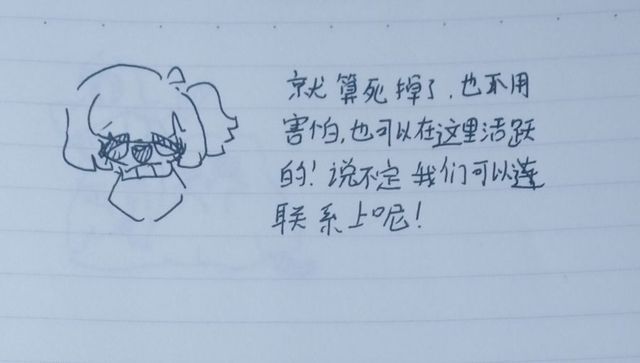 就算死掉了,也不用
害怕,也可以在这里活跃
的!说不定我们可以连
联系上呢!